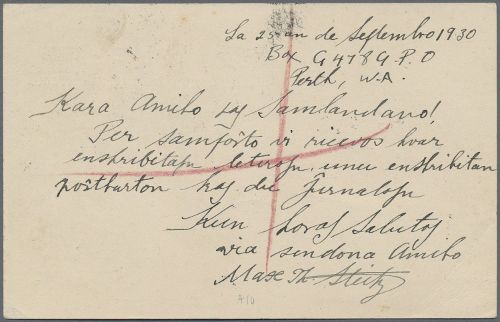 La 25an de Septembro 1930
Box G 478 G.P.O
Perth, W.A.
Kara Amiko kaj Samlandano!
Per samfoŝto vi ricevos kvar
enskribitajn leterojn, unu enskribitan
poŝtkarton kaj du Ĵurnalojn
Kun koraj Salutoj
via sindona Amiko
Max Th
A10